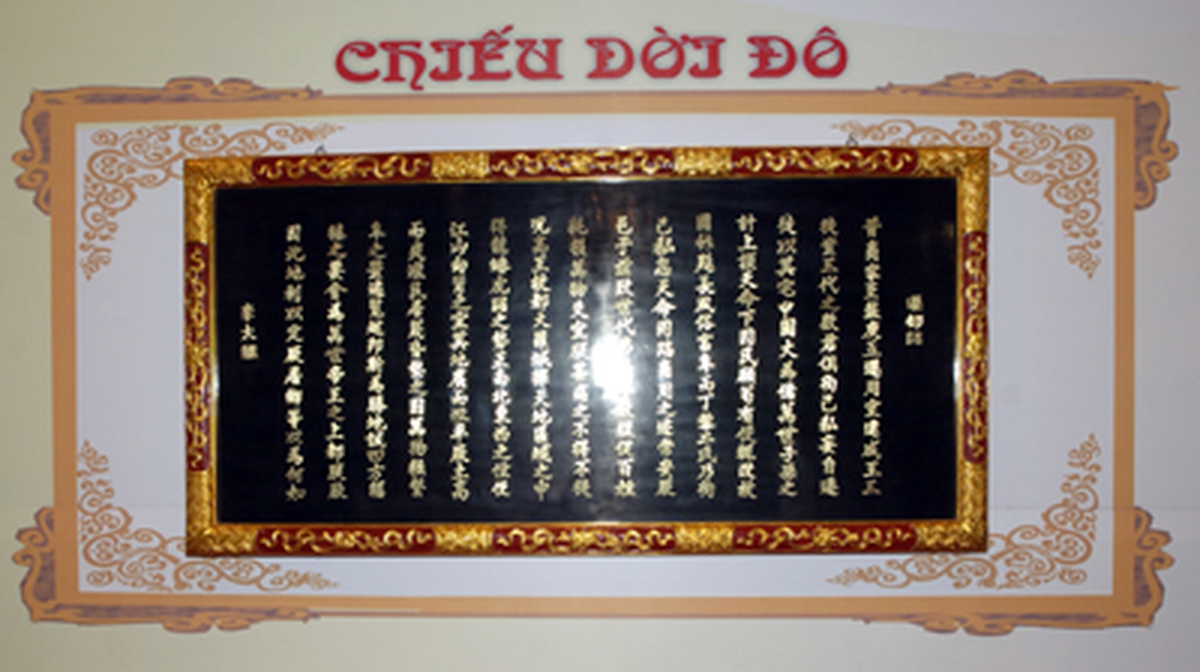 CHIẾU DỜI ĐÔ
遷都詔
昔商家至盤庚五遷周室建成王三
徙豈三代之數君徇己私妄自遷
徙以其宅中圖大為億萬世子孫之
計上謹天命下因民願苟有便輒改故
國祚延長風俗富阜而丁黎二氏乃徇
己私忽天命罔蹈商周之迹常安厥
邑于茲致世代促百姓
耗損萬物失宜朕甚痛之不得不徙
況高王故都大羅城宅天地區域之中
得龍蟠虎踞之勢正南北東西之位便
江山向背之宜其地廣而坦平厥土高
而爽塏民居蔑昏墊之困萬物極繁
阜之豐遍覽越邦斯為勝地誠四方輻
輳之要會為萬世帝王之上都朕
因此地利以定厥居卿等以為何如
李太祖